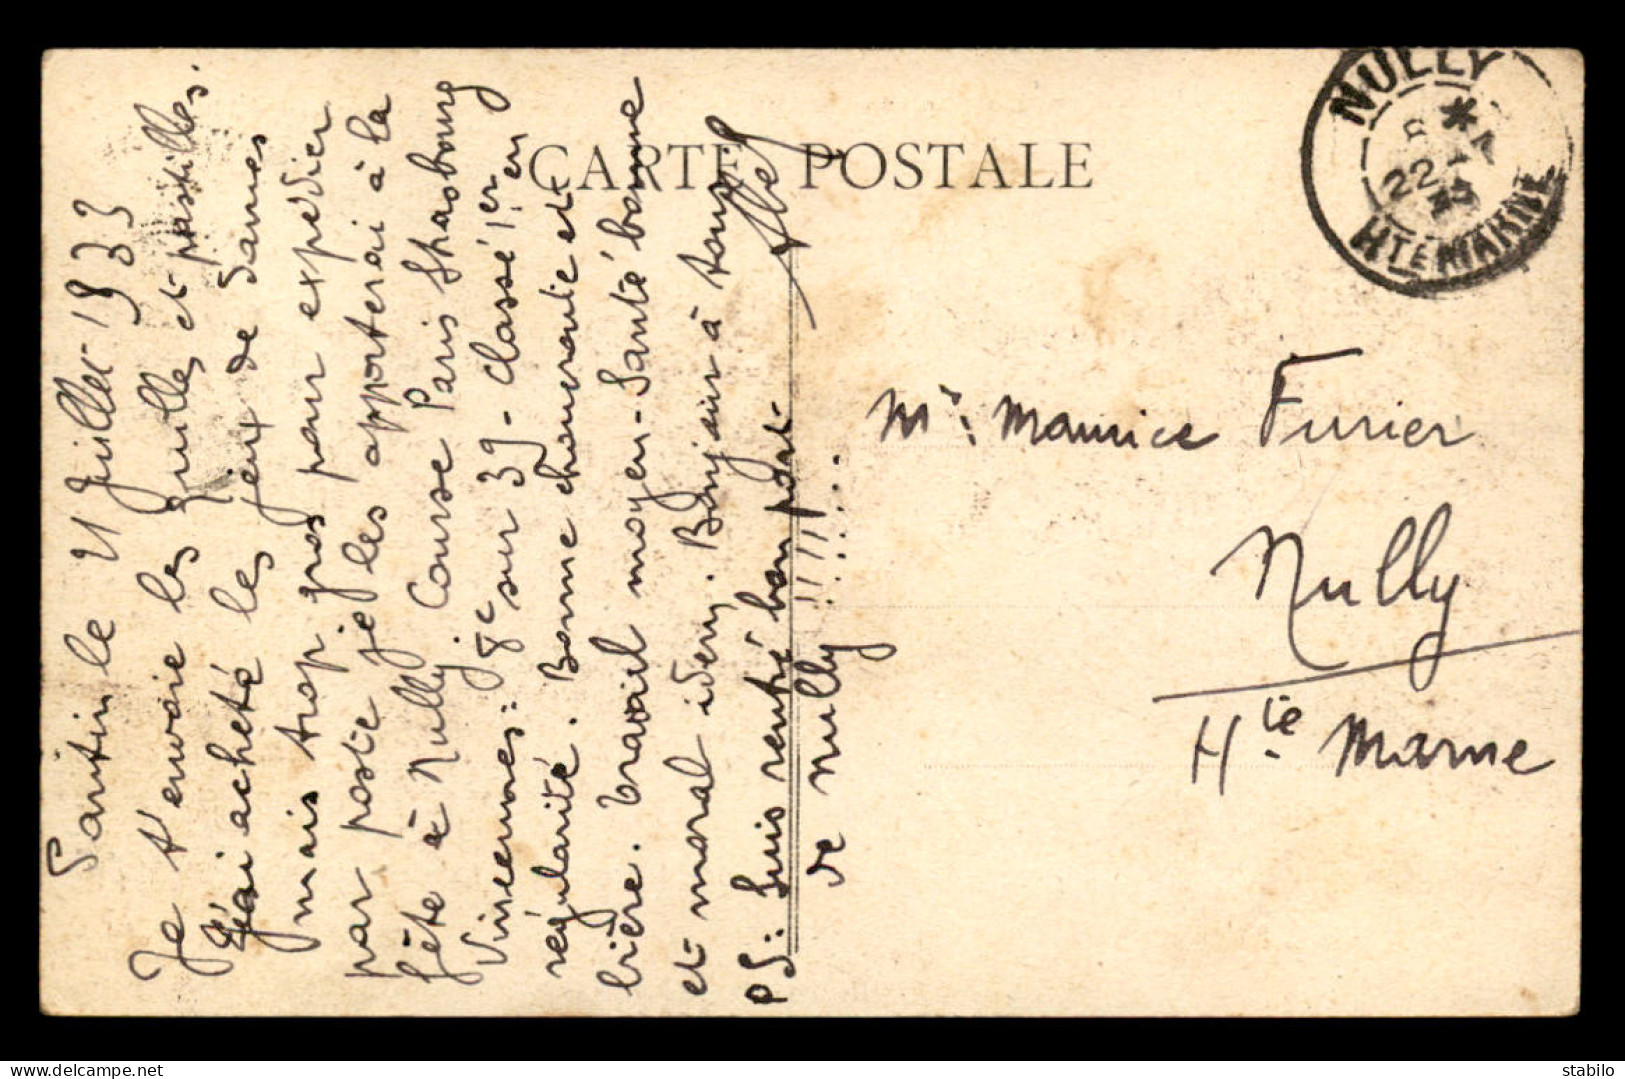 Pantin le 21 Juillet 1933
Je t'envoie les quilles et pastilles.
J'ai acheté les jeux de dames
mais trop gros pour expédier
par poste je les apporterai à la
fête à Nully. Course Paris Strasbourg
Vincennes: 8e sur 39 - Classé 1er en
régularité. Bonne choucroute et
bière. travail moyen - Santé bonne
et moral idem. Bonjour à tous
Abel
PS: Suis rentré bon port
de Nully !!!!!...
CARTE POSTALE
NULLY
22
HTE MARNE
Mr: Maurice Furier
Nully
Hte Marne
delcampe.net
stabilo